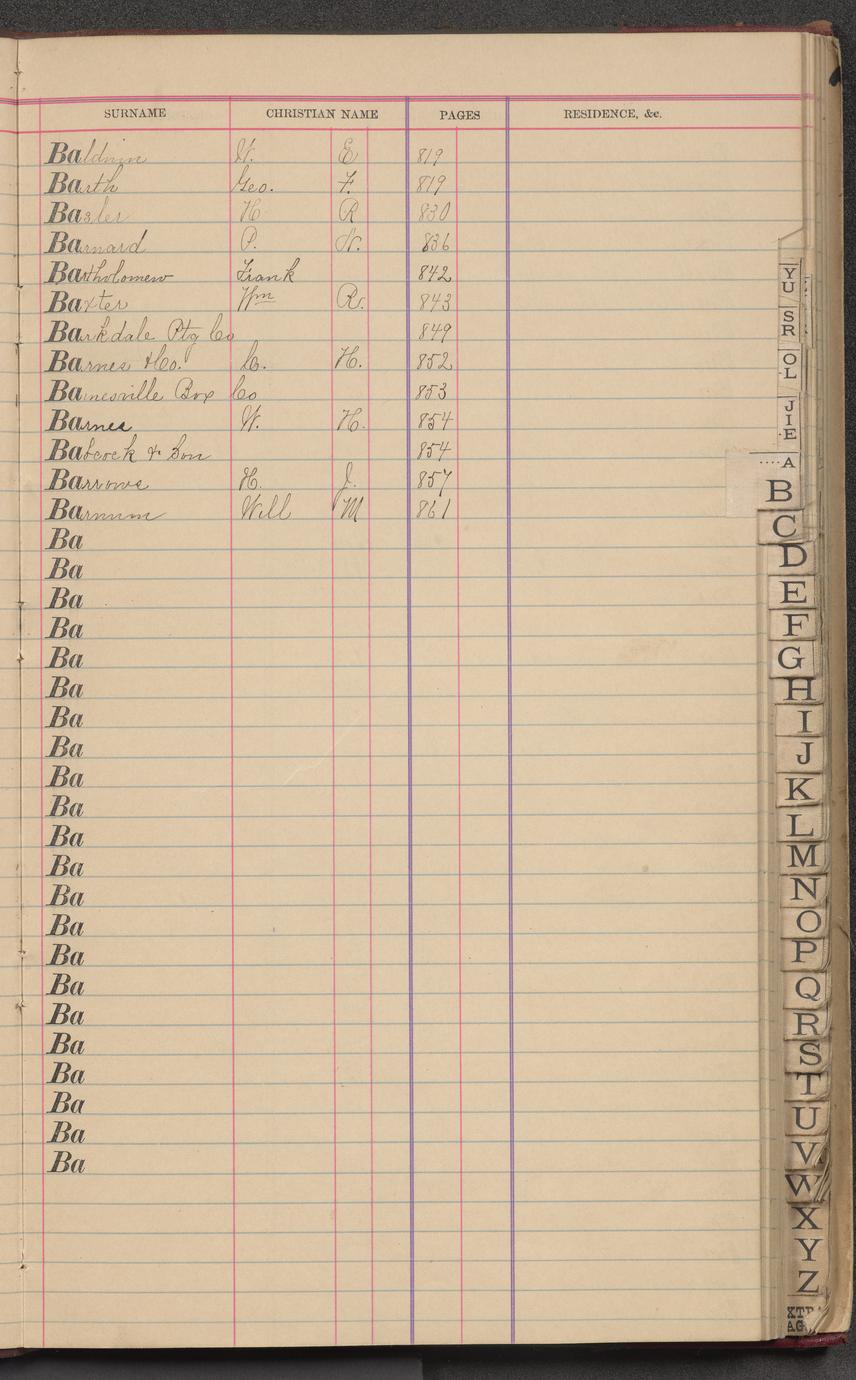 SURNAME CHRISTIAN NAME PAGES RESIDENCE, &c.
Baldwin W. E 819
Barth Geo. F. 819
Basler H R 830
Barnard P. W. 836
Bartholomew Frank 842
Baxter Wm R. 843
Barkdale Ptg Co 849
Barnes & Co. C. H. 852
Barnesville Box Co 853
Barnes W. H. 854
Babcock & Son 854
Barrows H. J. 857
Barnum Will M 861
Ba
Ba
Ba
Ba
Ba
Ba
Ba
Ba
Ba
Ba
Ba
Ba
Ba
Ba
Ba
Ba
Ba
Ba
Ba
Ba
Ba
Ba
YU
SR
OL
JIE
A
B
C
D
E
F
G
H
I
J
K
L
M
N
O
P
Q
R
S
T
U
V
W
X
Y
Z